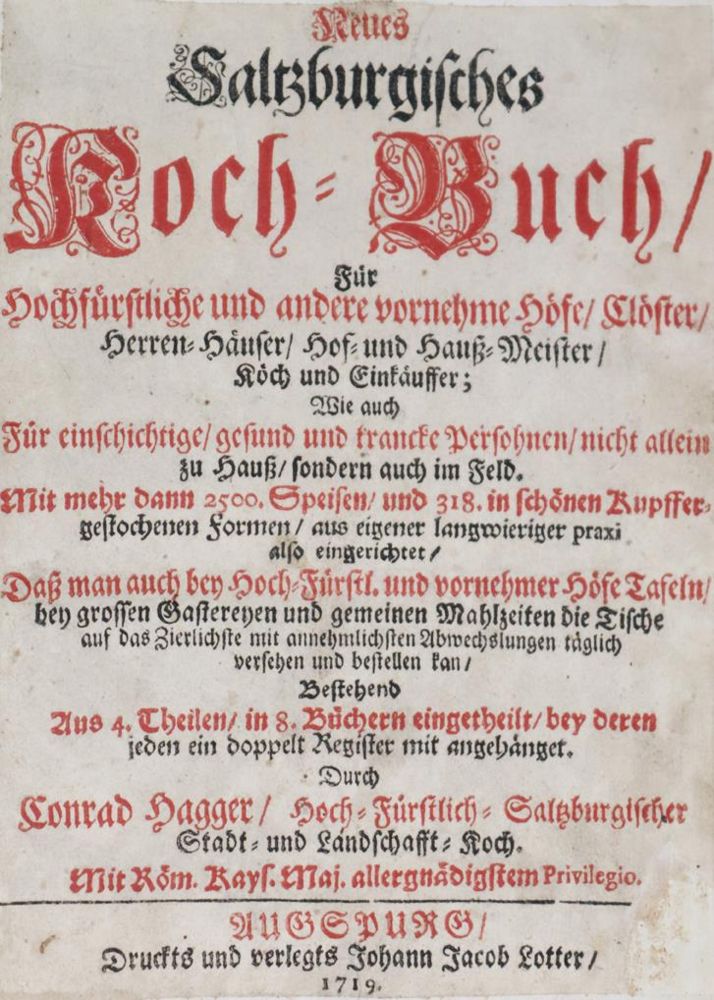 Neues
Saltzburgisches
Koch-Buch/
Für
Hochfürstliche und andere vornehme Höfe/ Clöster/
Herren-Häuser/ Hof- und Hauß-Meister/
Köch und Einkäuffer;
Wie auch
Für einschichtige/ gesund und krancke Persohnen/ nicht allein
zu Hauß/ sondern auch im Feld.
Mit mehr dann 2500. Speisen/ und 318. in schönen Kupffer-
gestochenen Formen/ aus eigener langwieriger praxi
also eingerichtet/
Daß man auch bey Hoch-Fürstl. und vornehmer Höfe Tafeln/
bey grossen Gastereyen und gemeinen Mahlzeiten die Tische
auf das Zierlichste mit annehmlichsten Abwechslungen täglich
versehen und bestellen kan/
Bestehend
Aus 4. Theilen/ in 8. Büchern eingetheilt/ bey deren
jeden ein doppelt Register mit angehänget.
Durch
Conrad Hagger/ Hoch-Fürstlich-Saltzburgischer
Stadt- und Landschafft-Koch.
Mit Röm. Kays. Maj. allergnädigstem Privilegio.
AUGSPURG/
Druckts und verlegts Johann Jacob Lotter/
1719.